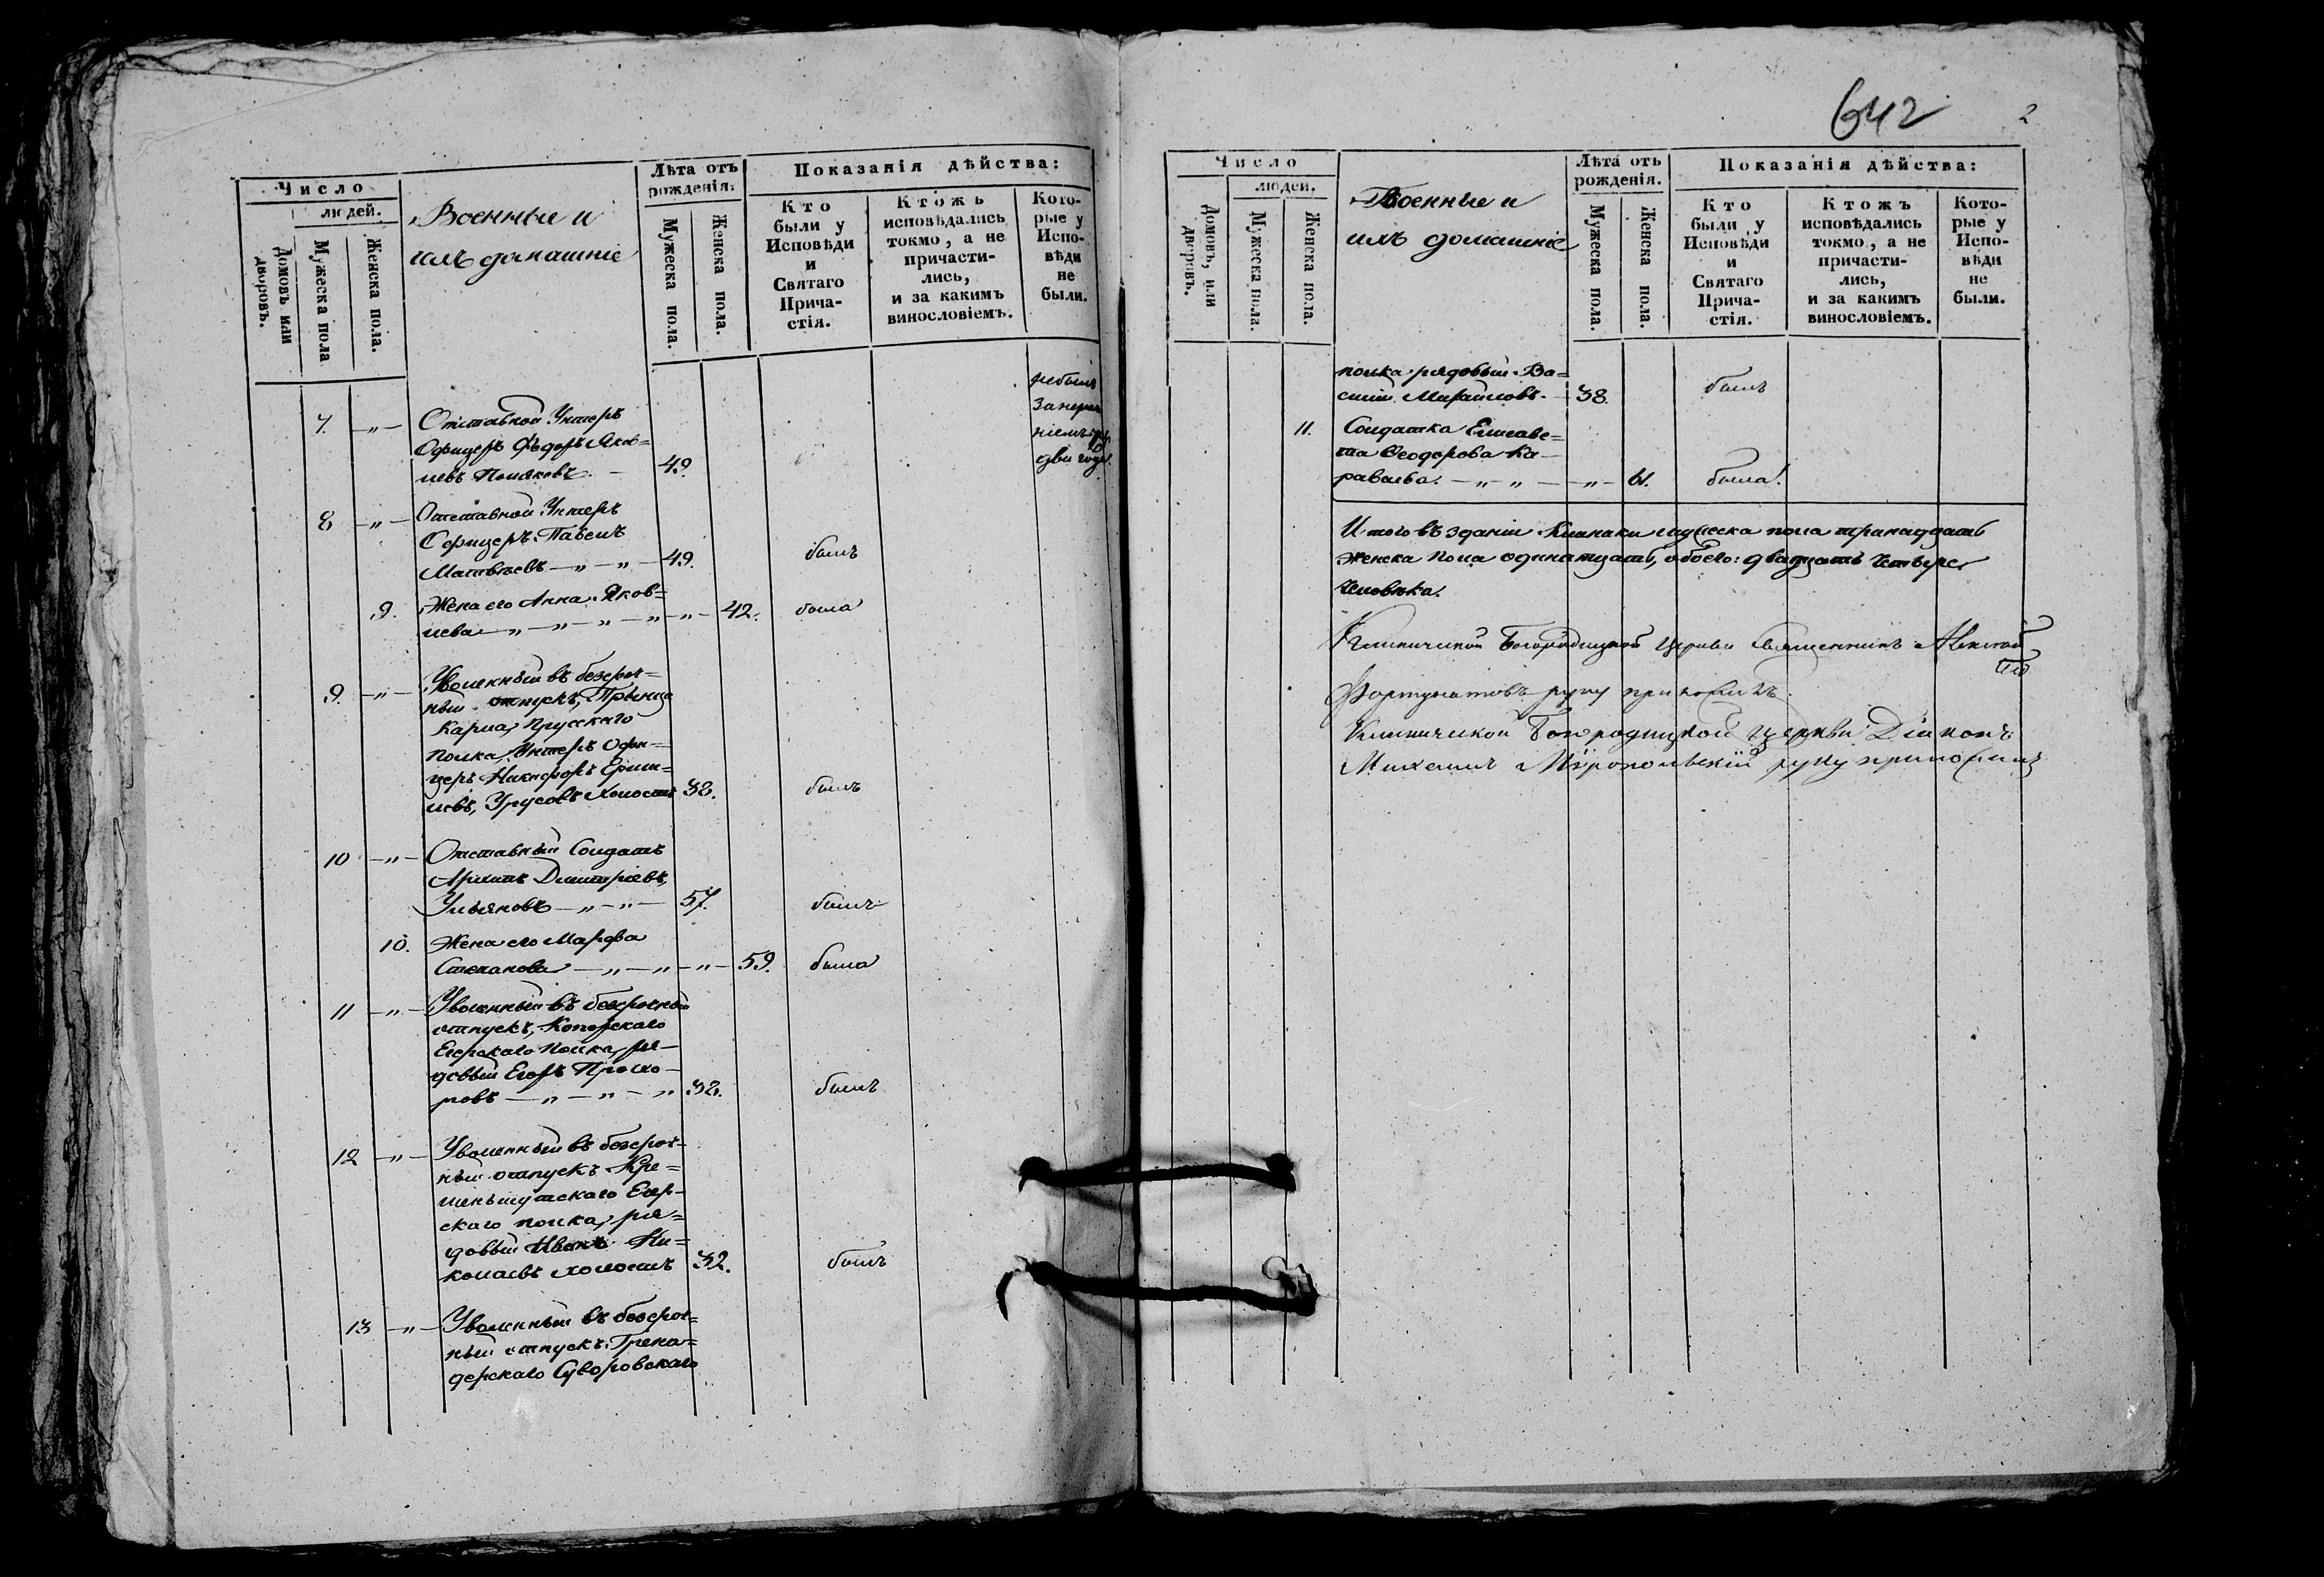 Число
людей.
Домовъ или дворовъ.
Мужеска пола
Женска пола.
Военные и
ихъ домашніе
Лѣта отъ рожденія:
Мужеска пола.
Женска пола.
Показанія дѣйства:
Кто были у Исповѣди и Святаго Прича-стія.
Ктожъ исповѣдались токмо, а не причасти-лись, и за какимъ винословіемъ.
Кото-рые у Испо-вѣди не были.
7. —„— Отставной Унтеръ
Офицеръ Ѳедоръ Яков=
левъ Поляковъ — 49.
небылъ
два года.
8 —„— Отставной Унтеръ
Офицеръ Павелъ
Матвѣевъ —„—„— 49. былъ
9. Жена его Анна Яков=
лева —„—„—„—„—„— 42. была
9. —„— Уволенный въ безсроч=
ный отпускъ, Принца
Карла Прусскаго
полка, Унтеръ Офи=
церъ Никифоръ Ермо=
левъ, Урусовъ холостъ 38. былъ
10 —„— Отставный Солдатъ
Архипъ Димитріевъ,
Ульяновъ —„—„— 57. былъ
10. Жена его Марфа
Степанова —„—„—„— 59. была
11 —„— Уволенный въ безсрочный
отпускъ, Копорскаго
Егерскаго полка, ря=
довый Егоръ Прохо=
ровъ —„—„—„ 38. былъ
12 —„— Уволенный въ безсроч=
ный отпускъ Кре=
менчугскаго Егер=
скаго полка, ря=
довый Иванъ Ни=
колаевъ холостъ 32. былъ
13 —„— Уволенный въ безсроч=
ный отпускъ Грена=
дерскаго Суворовскаго
642 2
Число
людей.
Домовъ, или дворовъ.
Мужеска пола.
Женска пола.
Военные и
ихъ домашніе
Лѣта отъ рожденія.
Мужеска пола.
Женска пола.
Показанія дѣйства:
Кто были у Исповѣди и Святаго Прича-стія.
Ктожъ исповѣдались токмо, а не причасти-лись, и за какимъ винословіемъ.
Кото-рые у Испо-вѣди не были.
полка рядовый Ва=
силій Михайловъ. 38. былъ
11. Солдатка Елисаве=
та Ѳеодорова Ка=
раваева. —„—„—„— 61. была
Итого въ зданіи Клиники мужеска пола тринадцать
женска пола одинатцать, обоего: двадцать четыре
человѣка.
Клинической Богородицкой церкви Священникъ Алексѣй
Фортунатовъ руку приложилъ.
Клинической Богородицкой церкви Діаконъ
Михаилъ Міропольскій руку приложилъ